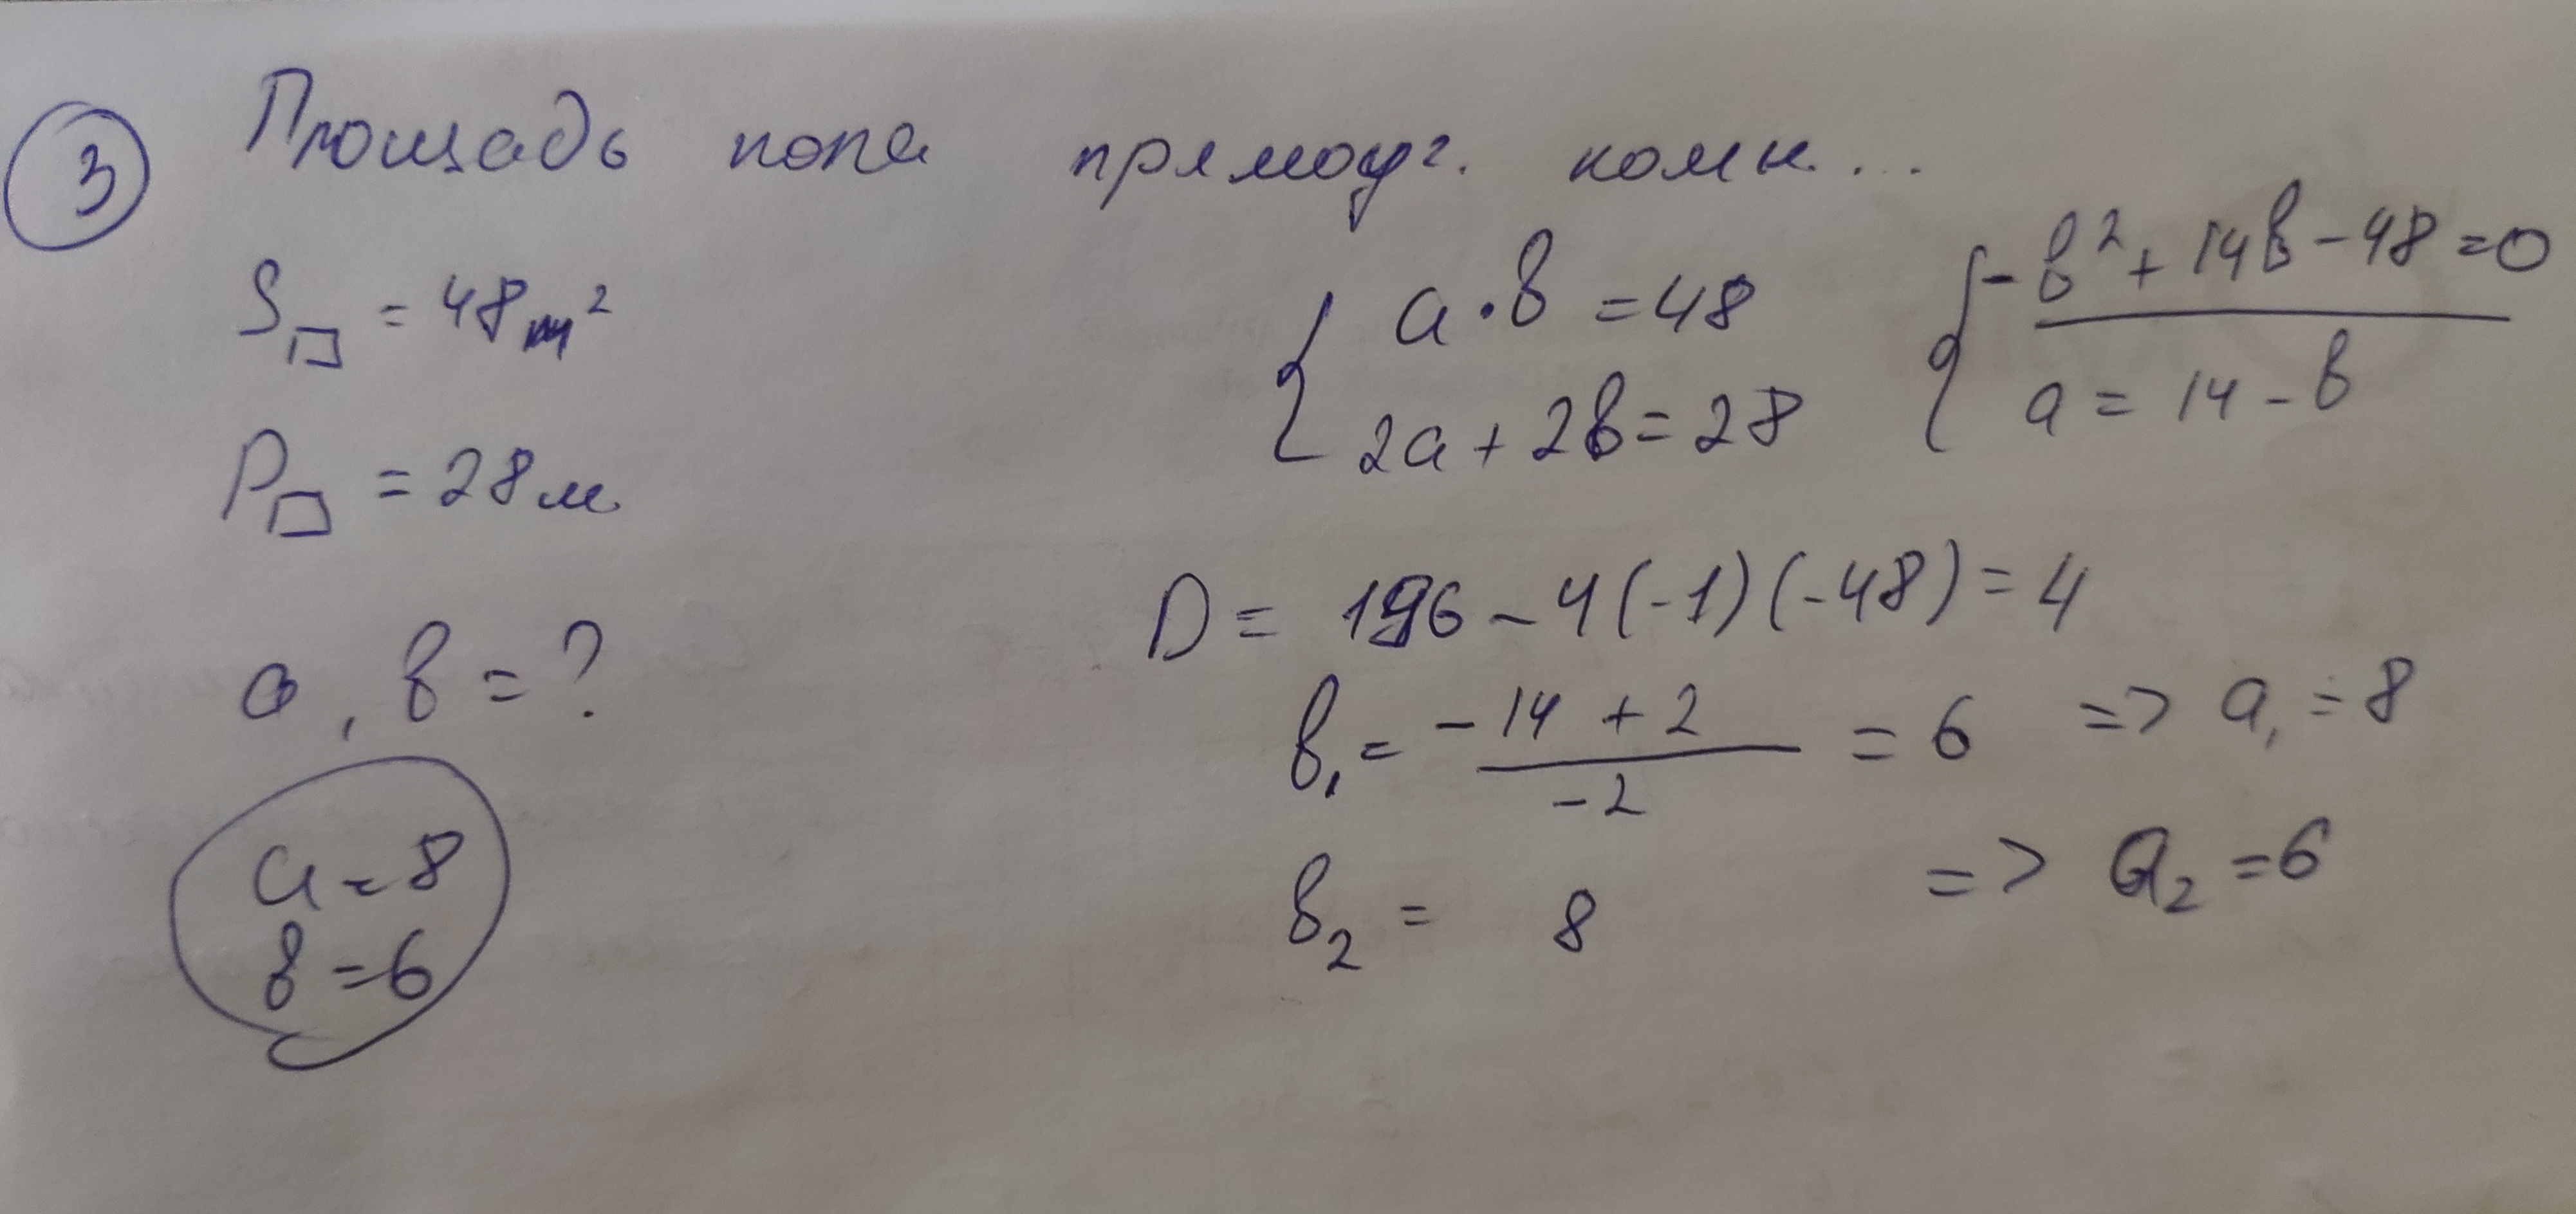 3 Площадь пола прямоуг. комн...
S▭ = 48 м²
P▭ = 28 м
a, b = ?
a = 8
b = 6
{ a · b = 48
2a + 2b = 28
{ -b² + 14b - 48 = 0
a = 14 - b
D = 196 - 4(-1)(-48) = 4
b₁ = -14 + 2 / -2 = 6 => a₁ = 8
b₂ = 8 => a₂ = 6